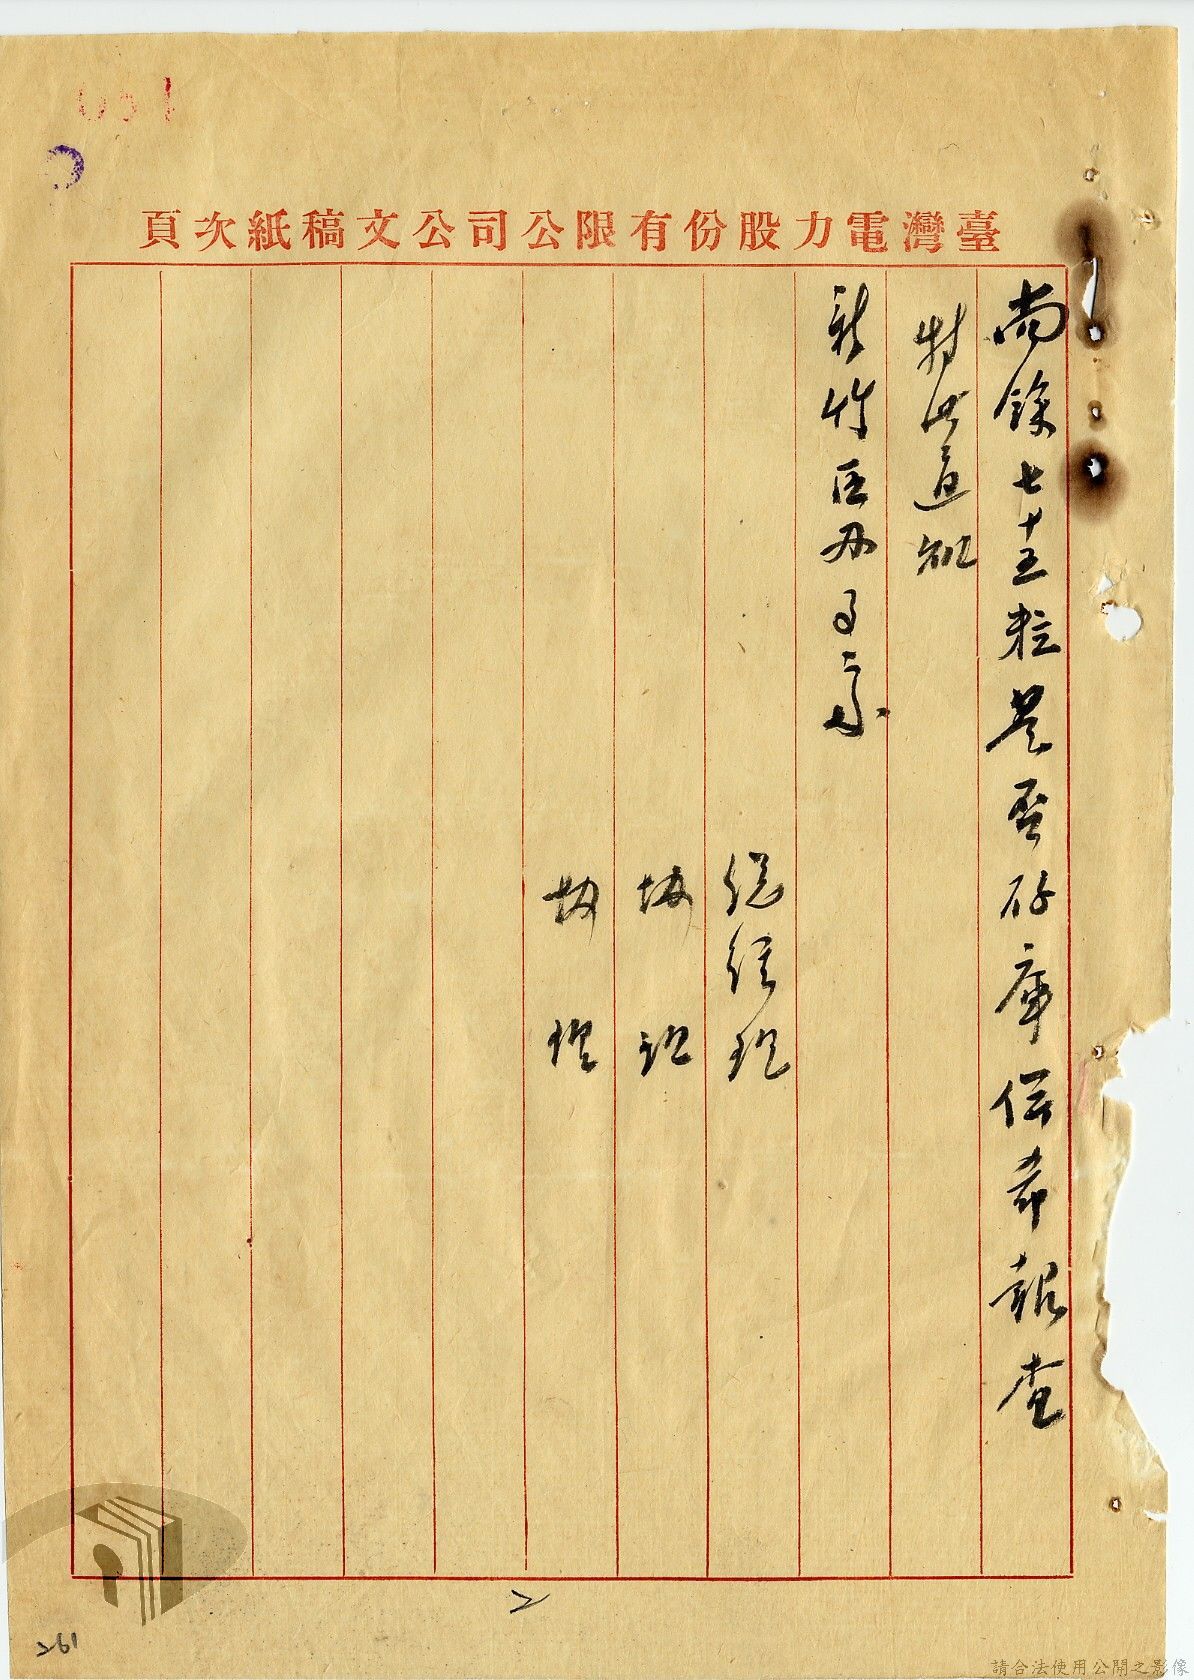 051
臺灣電力股份有限公司公文稿紙次頁
尚餘七十五粒是否存庫併希報查
特此通知
新竹區办事處
總經理
協理
協理
2
261
請合法使用公開之影像